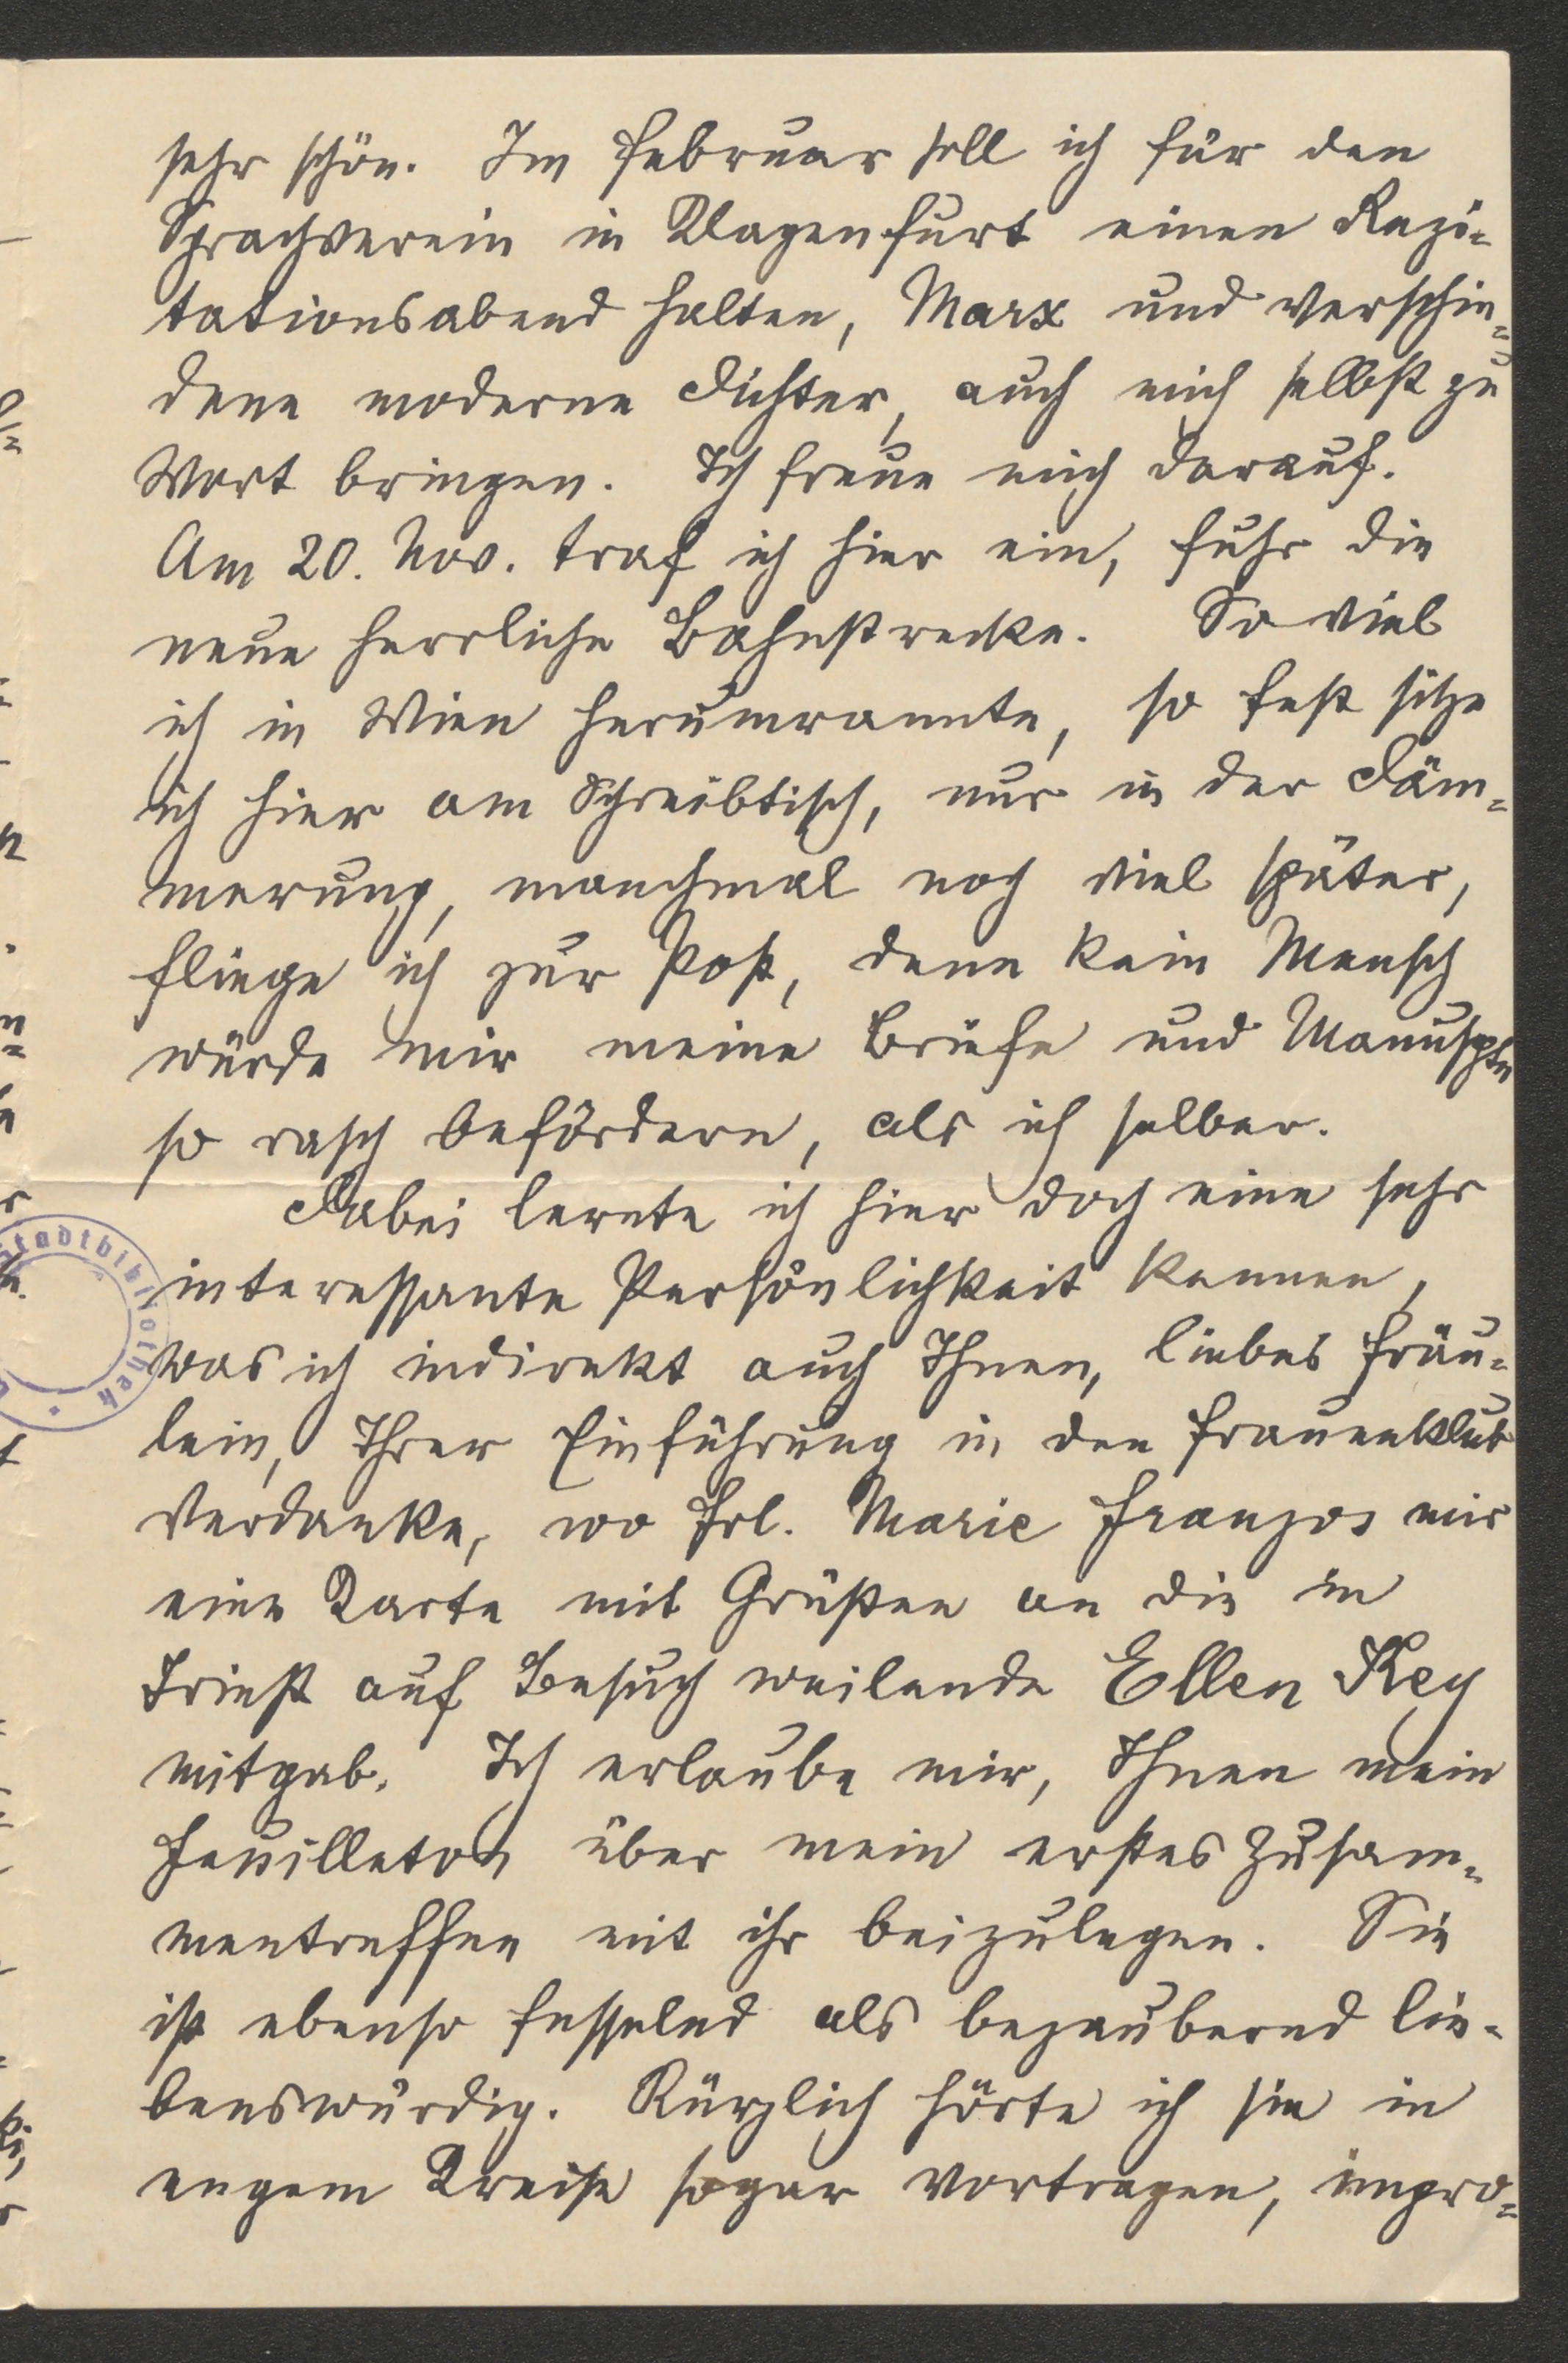 sehr schön. Im Februar soll ich für den
Sprachverein in Klagenfurt einen Rezi-
tationsabend halten, Marx und verschie-
dene moderne Dichter, auch mich selbst zu
Wort bringen. Ich freue mich darauf.
Am 20. Nov. traf ich hier ein, fuhr die
neue herrliche Bahnstrecke. So viel
ich in Wien herumrannte, so fest sitze
ich hier am Schreibtisch, nur in der Däm-
merung, manchmal noch viel später,
fliege ich zur Post, denn kein Mensch
würde mir meine Briefe und Manuskpte
so rasch befördern, als ich selber.
Dabei lernte ich hier doch eine sehr
interessante Persönlichkeit kennen,
was ich indirekt auch Ihnen, liebes Fräu-
lein, Ihrer Einführung in den Frauenklub
verdanke, wo Frl. Marie Franzos mir
eine Karte mit Grüßen an die in
Triest auf Besuch weilende Ellen Key
mitgab. Ich erlaube mir, Ihnen mein
Feuilleton über mein erstes Zusam-
mentreffen mit ihr beizulegen. Sie
ist ebenso fesselnd als bezaubernd lie-
benswürdig. Kürzlich hörte ich sie in
engem Kreise sogar vortragen, impro-
Stadtbibliothek